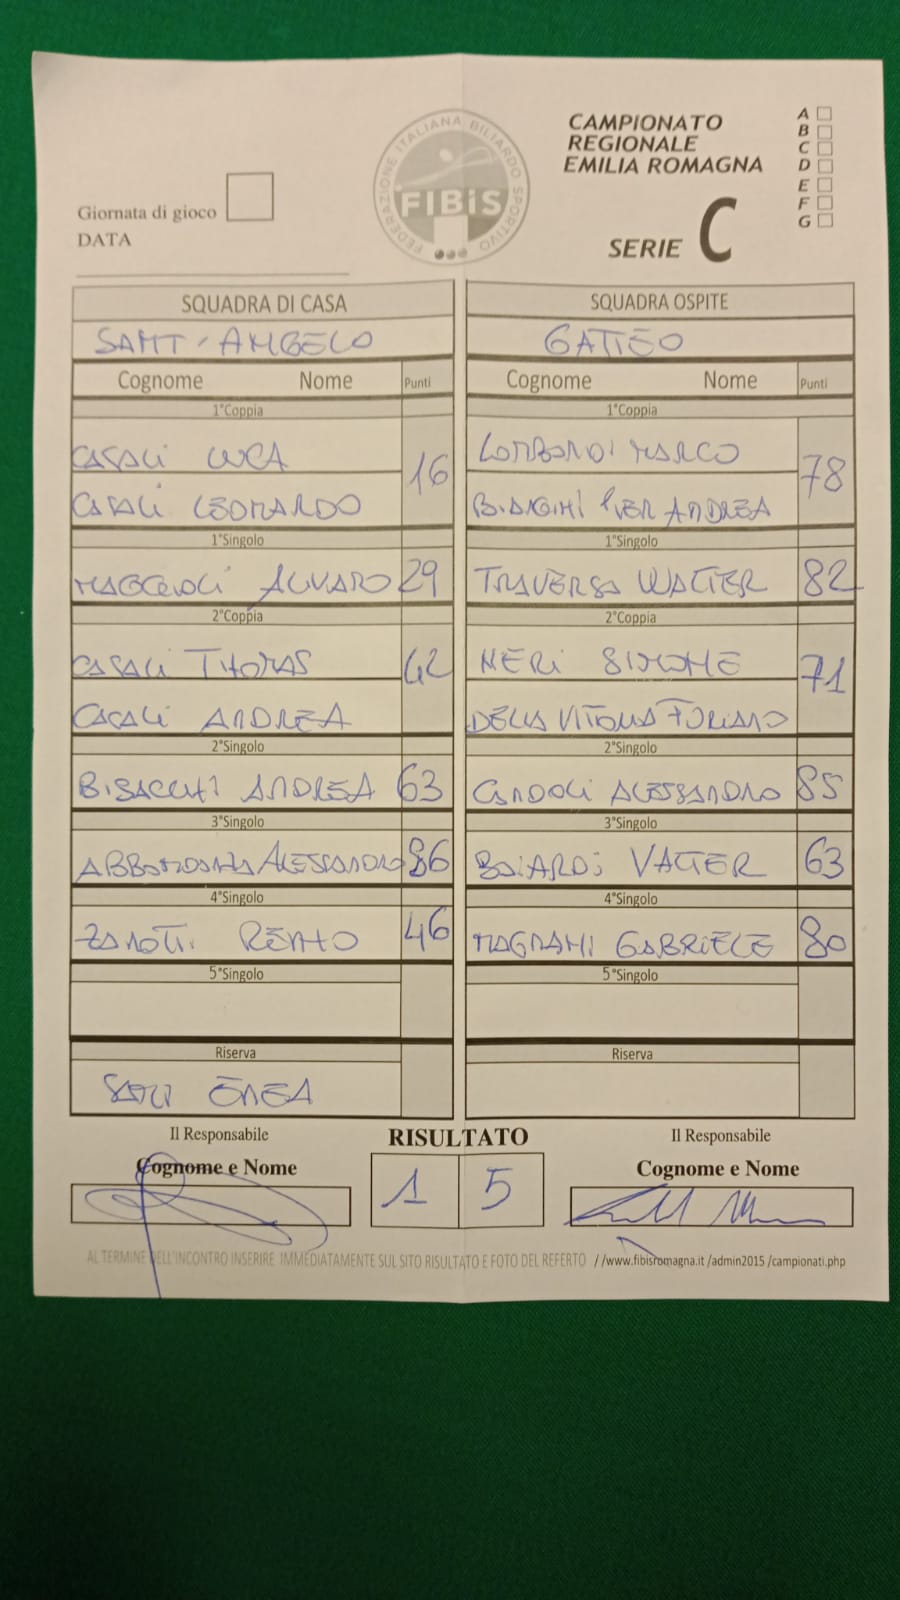 FEDERAZIONE ITALIANA BILIARDO SPORTIVO
FIBiS
CAMPIONATO
REGIONALE
EMILIA ROMAGNA
SERIE C
A
B
C
D
E
F
G
Giornata di gioco
DATA
SQUADRA DI CASA
SANT'ANGELO
Cognome Nome Punti
1°Coppia
CASALI LUCA
16
CASALI LEONARDO
1°Singolo
MAGGIOLI ALVARO 29
2°Coppia
CASALI THOMAS
42
CASALI ANDREA
2°Singolo
BISACCHI ANDREA 63
3°Singolo
ALESSANDRO 86
4°Singolo
ZANOTTI RENATO 46
5°Singolo
Riserva
ENEA
SQUADRA OSPITE
GATTEO
Cognome Nome Punti
1°Coppia
LOMBARDI MARCO
78
BIANCHI PIER ANDREA
1°Singolo
TRAVERSA WALTER 82
2°Coppia
NERI SIMONE
71
DELLA VITTORIA
2°Singolo
CANDOLI ALESSANDRO 85
3°Singolo
BOIARDI VALTER 63
4°Singolo
MAGNANI GABRIELE 80
5°Singolo
Riserva
Il Responsabile
Cognome e Nome
RISULTATO
1 5
Il Responsabile
Cognome e Nome
AL TERMINE DELL'INCONTRO INSERIRE IMMEDIATAMENTE SUL SITO RISULTATO E FOTO DEL REFERTO //www.fibisromagna.it /admin2015 /campionati.php